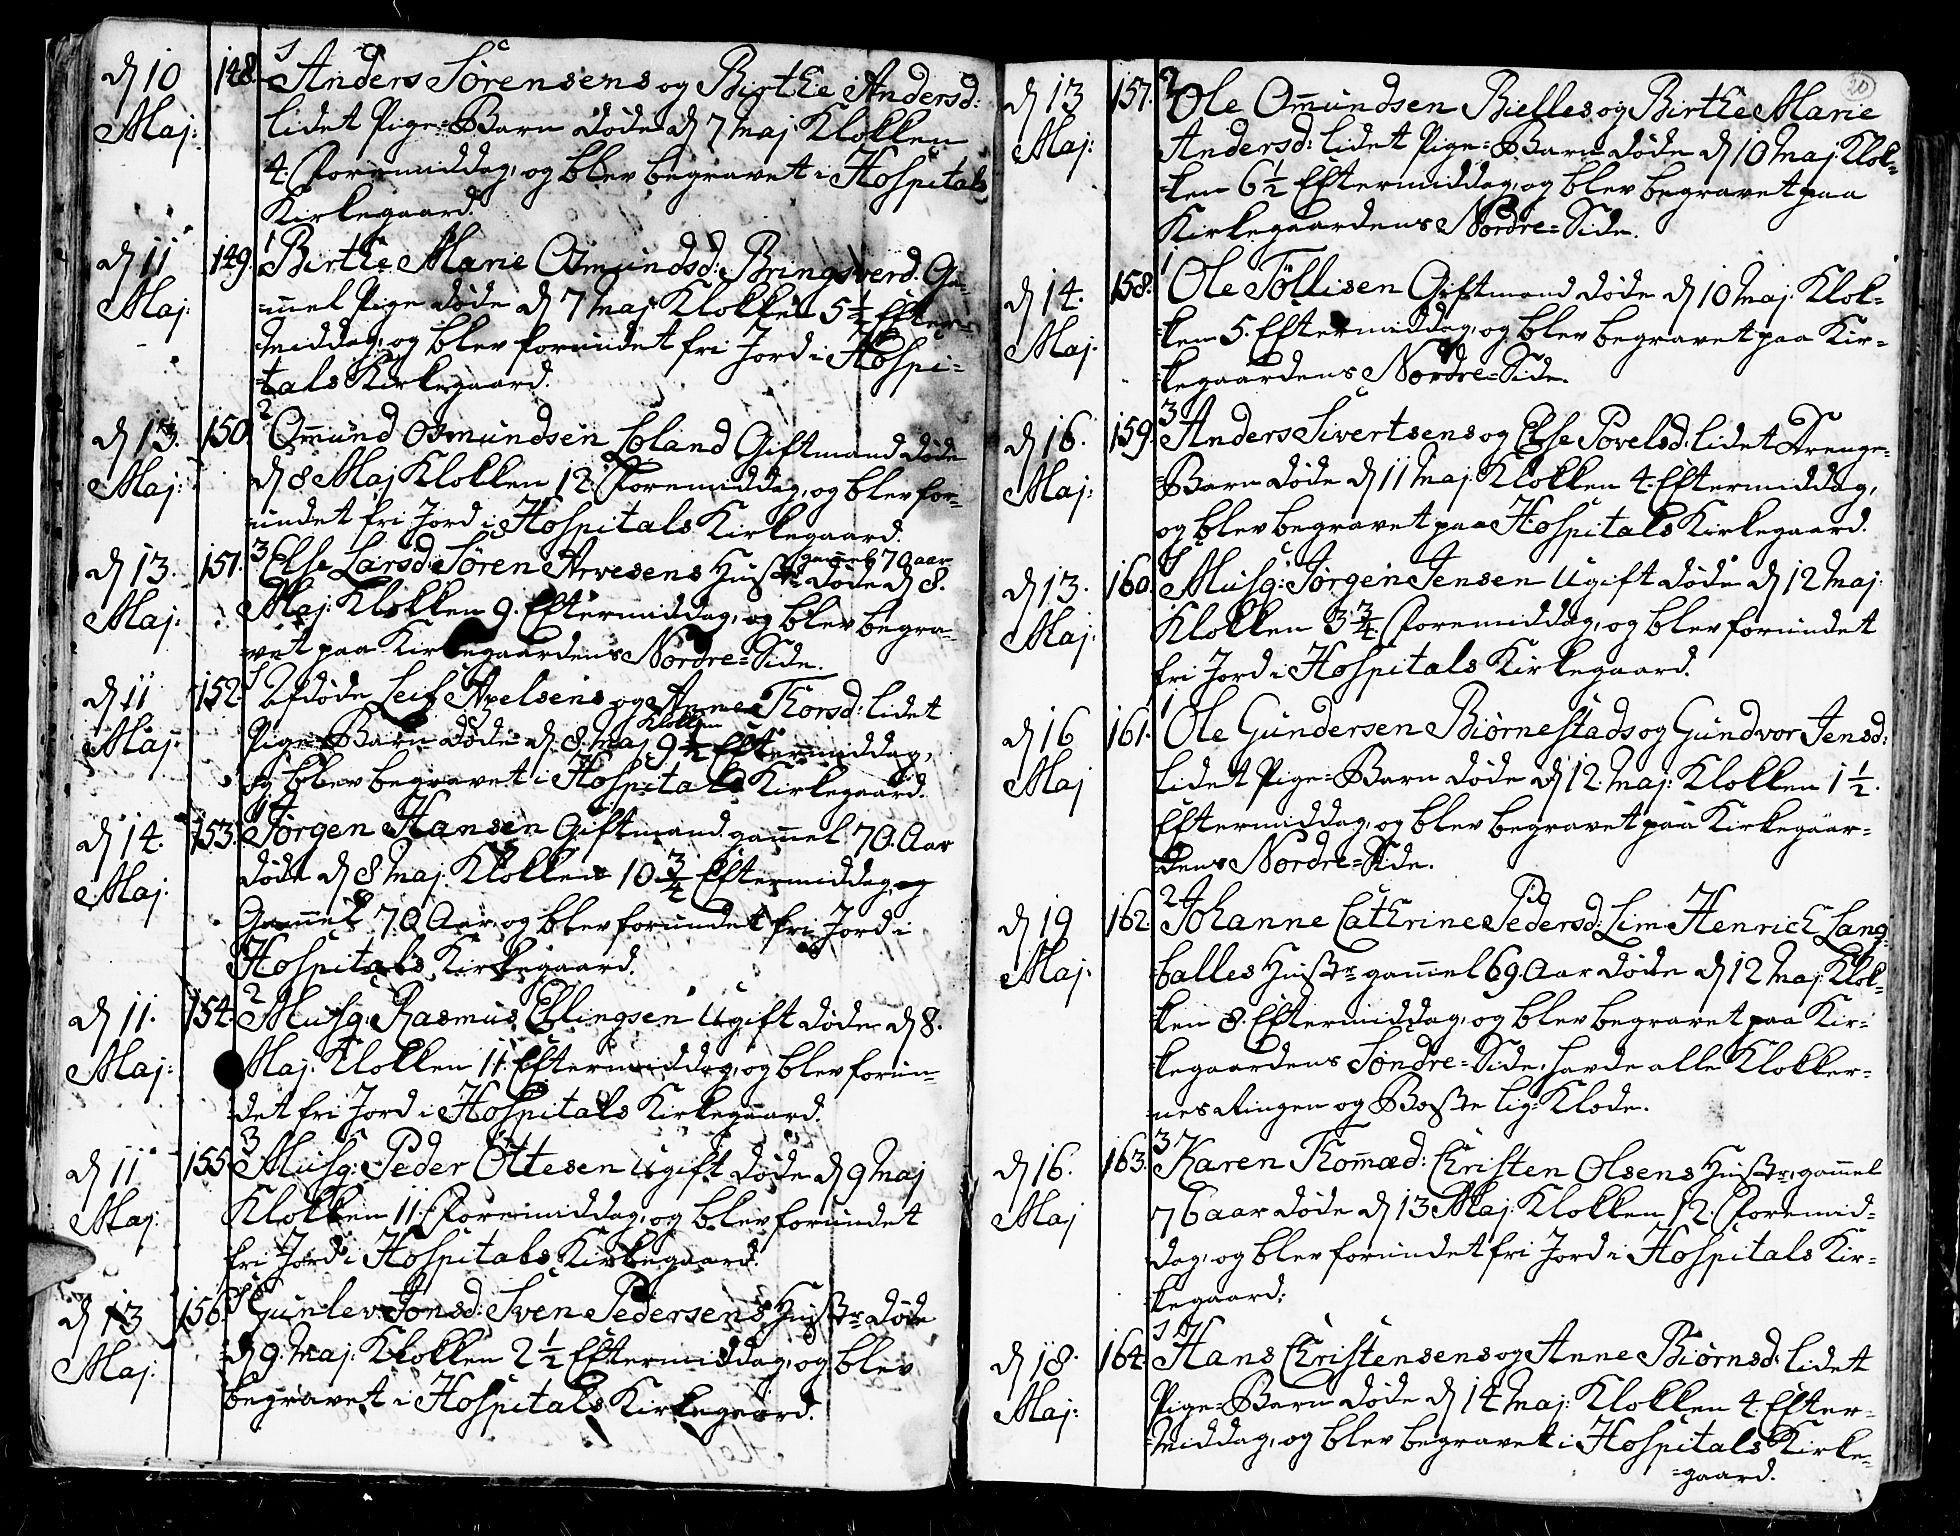 d 10 Maj: 148. 1 Anders Sörensens og Birthe Andersd:
lidet Pige=Barn døde d 7 Maj Klokken
4. Foremiddag, og blev begravet i Hospitals
Kirkegaard.
d 11 Maj: 149. 1 Birthe Marie Osmundsd: Bringsverd. Ga=
=mel Pige døde d 7 Maj Klokken 5½ Efter=
middag, og blev forundet fri Jord i Hospi=
=tals Kirkegaard.
d 13. Maj: 150. 2 Omund Osmundsen Loland Giftmand døde
d 8 Maj Klokken 12. Foremiddag, og blev for=
=undet fri Jord i Hospitals Kirkegaard.
d 13. Maj: 151. 3 Else Larsd: Søren Arvesens Hustr: gamel 70 aar døde d 8.
Maj: Klokken 9. Eftermiddag, og blev begra=
=vet paa Kirkegaardens Nordre=Side.
d 11 Maj: 152. Afdøde Leif Axelsens og Anne Thorsd: lidet
Pige=Barn døde d 8. Maj Klokken 9½ Eftermiddag,
og blev begravet i Hospitals Kirkegaard.
d 14. Maj: 153. 1 Jørgen Hansen Giftmand gamel 70. Aar
døde d 8 Maj. Klokken 10¾ Eftermiddag, og
Gamel 70 Aar, og blev forundet fri Jord i
Hospitals Kirkegaard.
d 11. Maj: 154. 2 Musq: Rasmus Ellingsen Ugift døde d 8.
Maj: Klokken 11. Eftermiddag, og blev forun=
=det fri Jord i Hospitals Kirkegaard.
d 11 Maj: 155. 3 Musq: Peder Ottesen Ugift døde d 9 Maj
Klokken 11. Foremiddag, og blev forundet
fri Jord i Hospitals Kirkegaard.
d 13 Maj: 156. Gunlev Jonsd: Sven Pedersens Hustr: døde
d 9. Maj: Klokken 2½ Eftermiddag, og blev
begravet i Hospitals Kirkegaard.
20
d 13 Maj: 157. 2 Ole Omundsen Bielles og Birthe Marie
Andersd: lidet Pige=Barn døde d 10 Maj: Klok=
=ken 6½ Eftermiddag, og blev begravet paa
Kirkegaardens Nordre=Side.
d 14. Maj: 158. 1 Ole Töllisen Giftmand døde d 10 Maj: Klok=
=ken 5. Eftermiddag, og blev begravet paa Kir=
=kegaardens Nordre=Side.
d 16. Maj: 159. 3 Anders Sivertsens og Else Povelsd: lidet Drenge=
=Barn døde d 11 Maj: Klokken 4. Eftermiddag,
og blev begravet paa Hospitals Kirkegaard.
d 13. Maj: 160. Musq: Jørgen Jensen Ugift døde d 12 Maj:
Klokken 3¾. Foremiddag, og blev forundet
fri Jord i Hospitals Kirkegaard.
d 16 Maj 161. 1 Ole Gundersen Biørnestads og Gundvor Jensd:
lidet Pige=Barn døde d 12. Maj: Klokken 1½.
Eftermiddag, og blev begravet paa Kirkegaar=
=dens Nordre=Side.
d 19 Maj: 162. 2 Johanne Cathrine Pedersd: Lim Henrich Lang=
=balles Hustr: gamel 69. Aar døde d 12 Maj: Klok=
=ken 8. Eftermiddag, og blev begravet paa Kir=
=kegaardens Söndre=Side, havde alle Klokker=
=nes Ringen og Beste Lig=Klæde.
d 16. Maj 163. 3 Karen Thomæd: Christen Olsens Hustr: gamel
76 aar døde d 13 Maj: Klokken 12. Foremid=
dag, og blev forundet fri Jord i Hospitals Kir=
=kegaard:
d 18. Maj: 164. Hans Christensens og Anne Biørnsd: lidet
Pige=Barn døde d 14 Maj: Klokken 4. Efter=
=middag, og blev begravet i Hospitals Kirke=
=gaard.